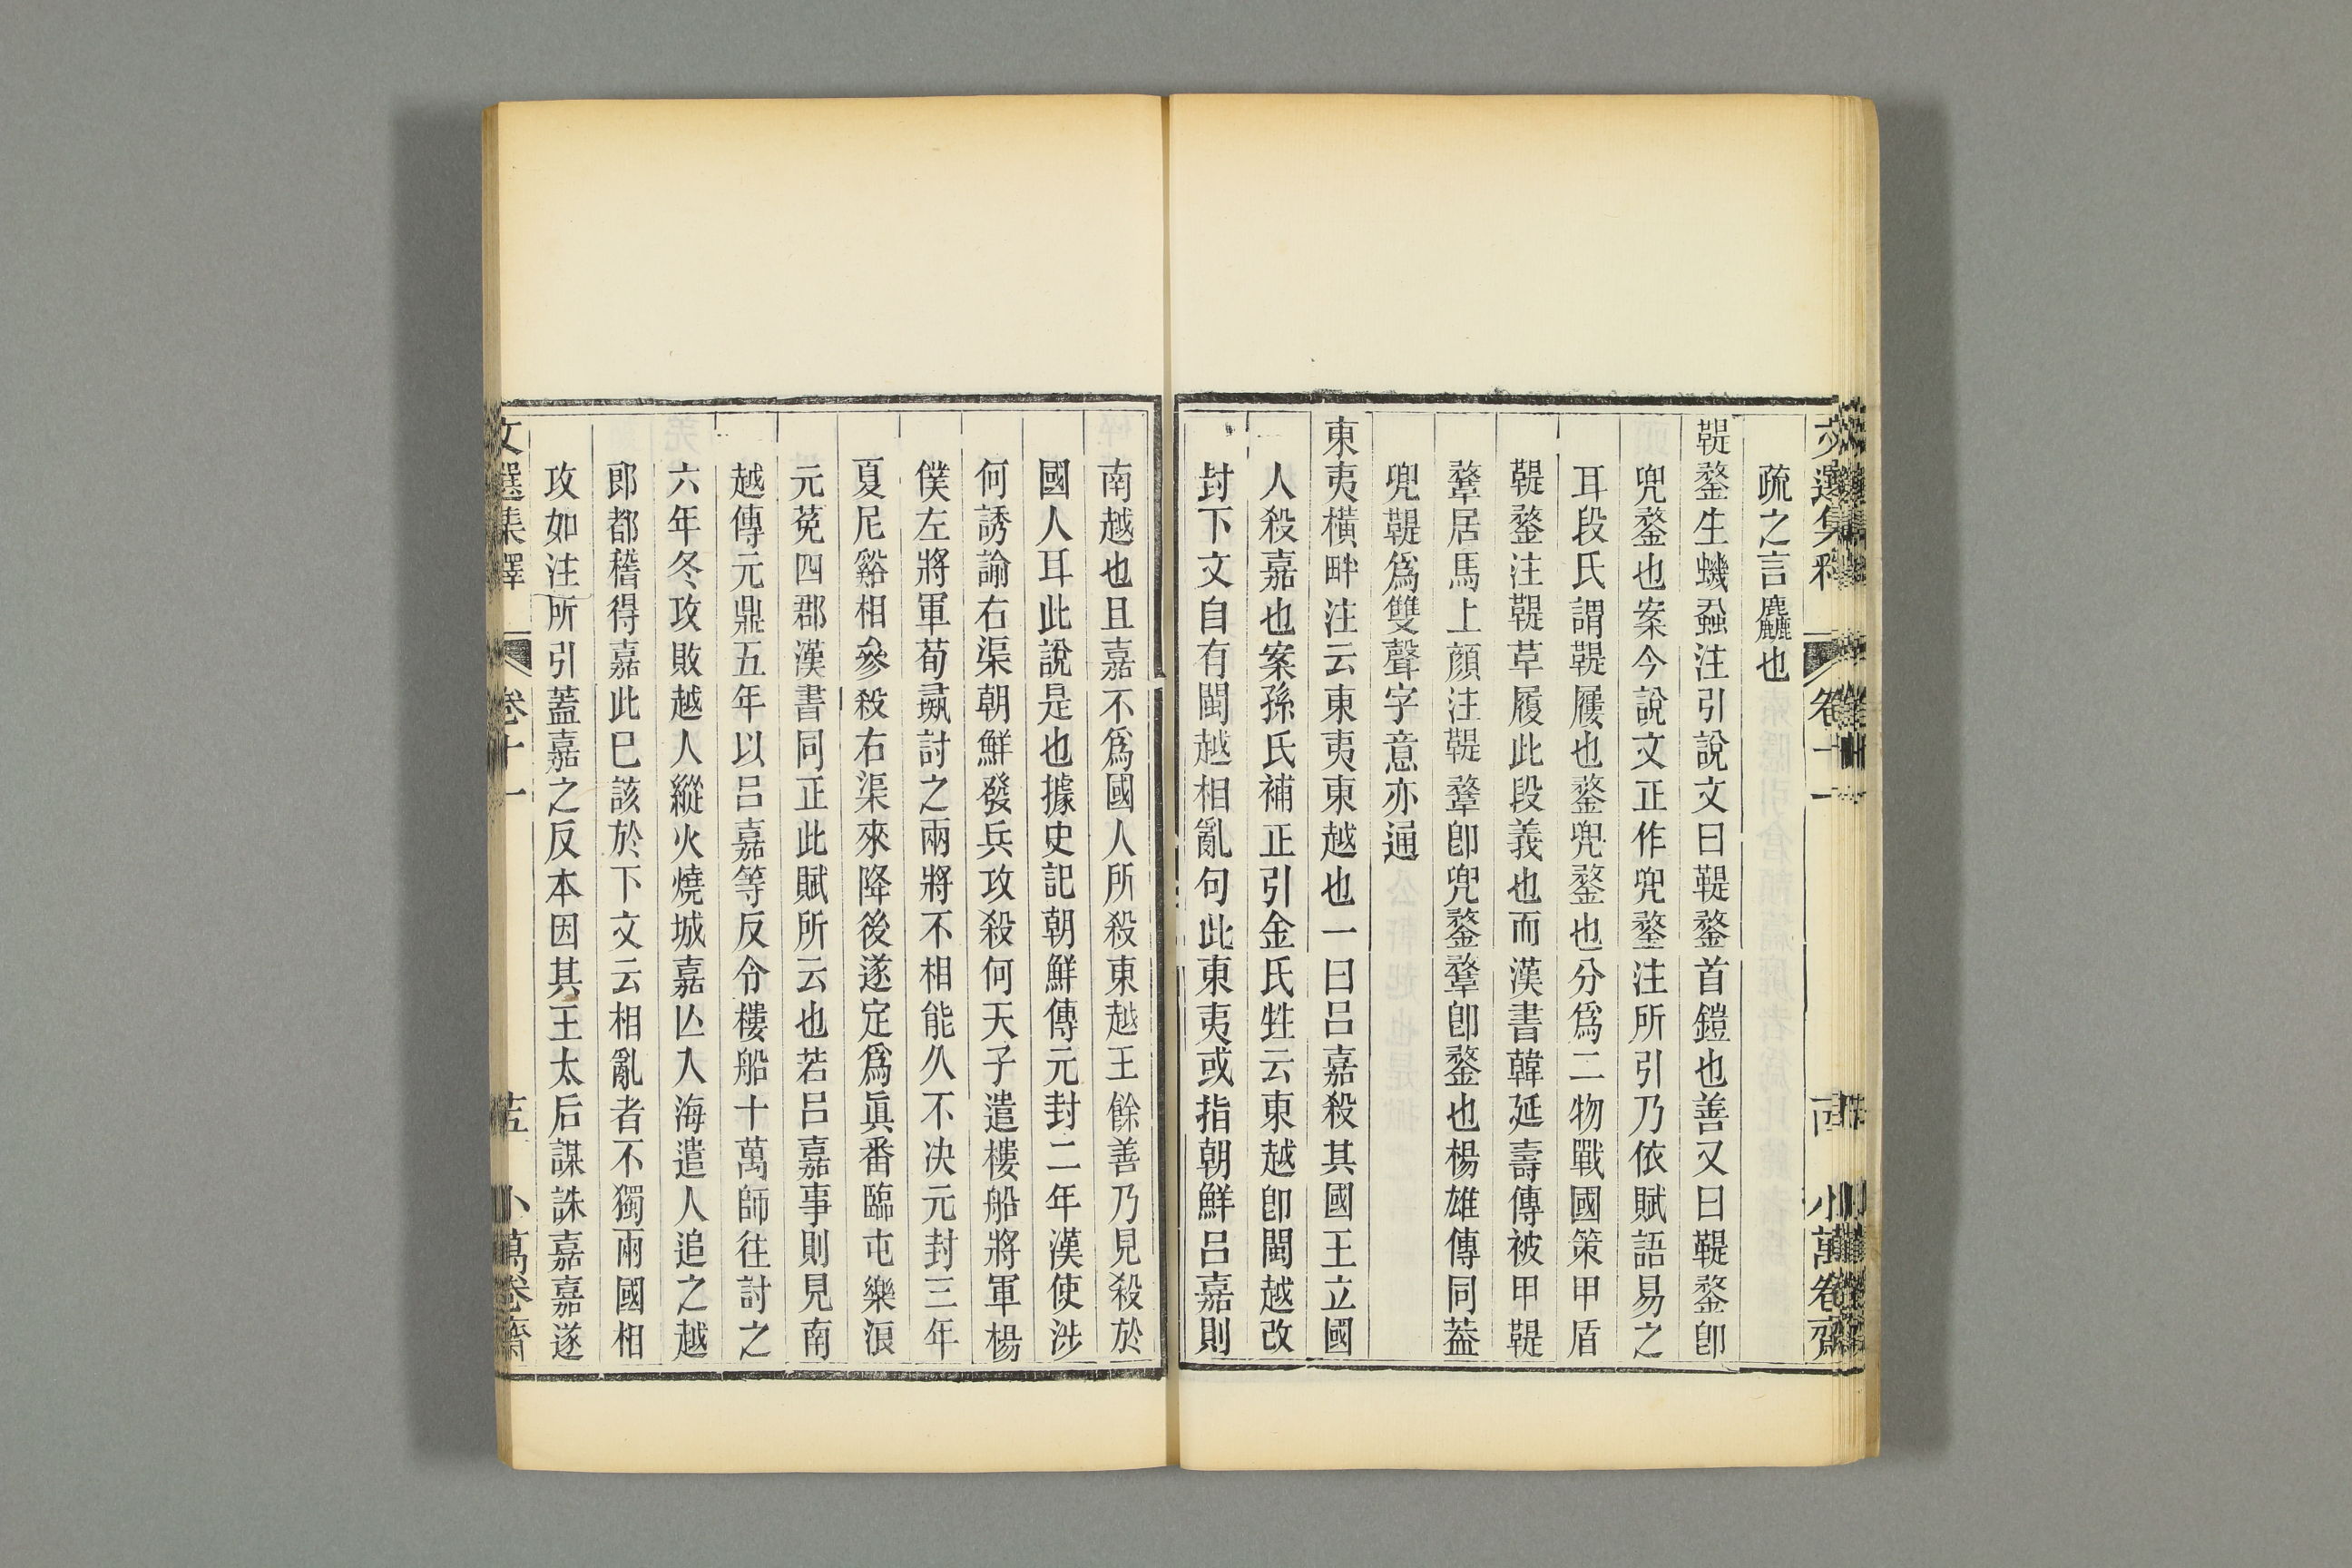 文選集釋 卷十一 小萬卷齋
疏之言麤也
鞮鍪生蟣蝨注引說文曰鞮鍪首鎧也善又曰鞮鍪卽
兜鍪也案今說文正作兜鍪注所引乃依賦語易之
耳段氏謂鞮屨也鍪兜鍪也分爲二物戰國策甲盾
鞮鍪注鞮草履此段義也而漢書韓延壽傳被甲鞮
鞪居馬上顏注鞮鞪卽兜鍪鞪卽鍪也楊雄傳同葢
兜鞮爲雙聲字意亦通
東夷橫畔注云東夷東越也一曰呂嘉殺其國王立國
人殺嘉也案孫氏補正引金氏甡云東越卽閩越改
封下文自有閩越相亂句此東夷或指朝鮮呂嘉則
南越也且嘉不爲國人所殺東越王餘善乃見殺於
國人耳此說是也據史記朝鮮傳元封二年漢使涉
何誘諭右渠朝鮮發兵攻殺何天子遣樓船將軍楊
僕左將軍荀彘討之兩將不相能久不決元封三年
夏尼谿相參殺右渠來降後遂定爲眞番臨屯樂浪
元菟四郡漢書同正此賦所云也若呂嘉事則見南
越傳元鼎五年以呂嘉等反令樓船十萬師往討之
六年冬攻敗越人縱火燒城嘉亾入海遣人追之越
郎都稽得嘉此巳該於下文云相亂者不獨兩國相
攻如注所引蓋嘉之反本因其王太后謀誅嘉嘉遂
文選集釋 卷十一 小萬卷齋